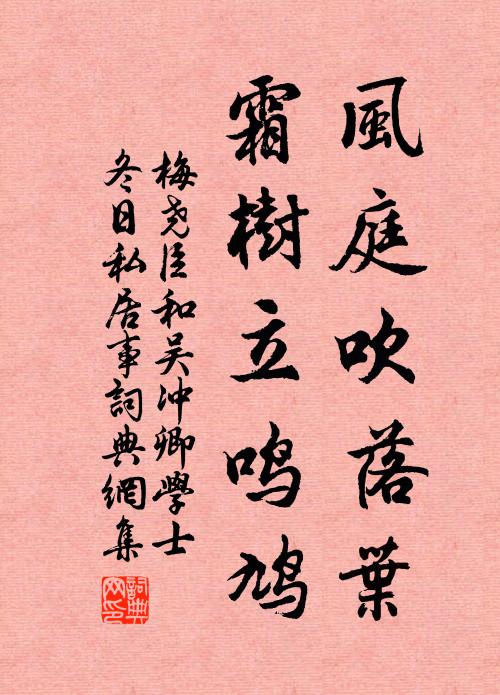 風庭吹落葉
霜樹立鸣鸠
梅尧臣和吴冲卿學士
冬日私居事詞典網集
詞典
网印